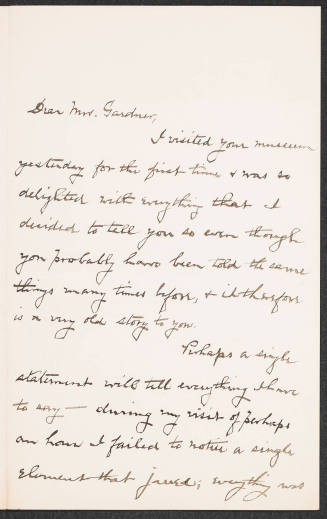 Dear Mrs. Gardner,
I visited your museum
yesterday for the first time & was so
delighted with everything that I
decided to tell you so even though
you probably have been told the same
things many times before, & it therefore
is a very old story to you.
Perhaps a single
statement will tell everything I have
to say — during my visit of perhaps
an hour I failed to notice a single
element that jarred; everything was